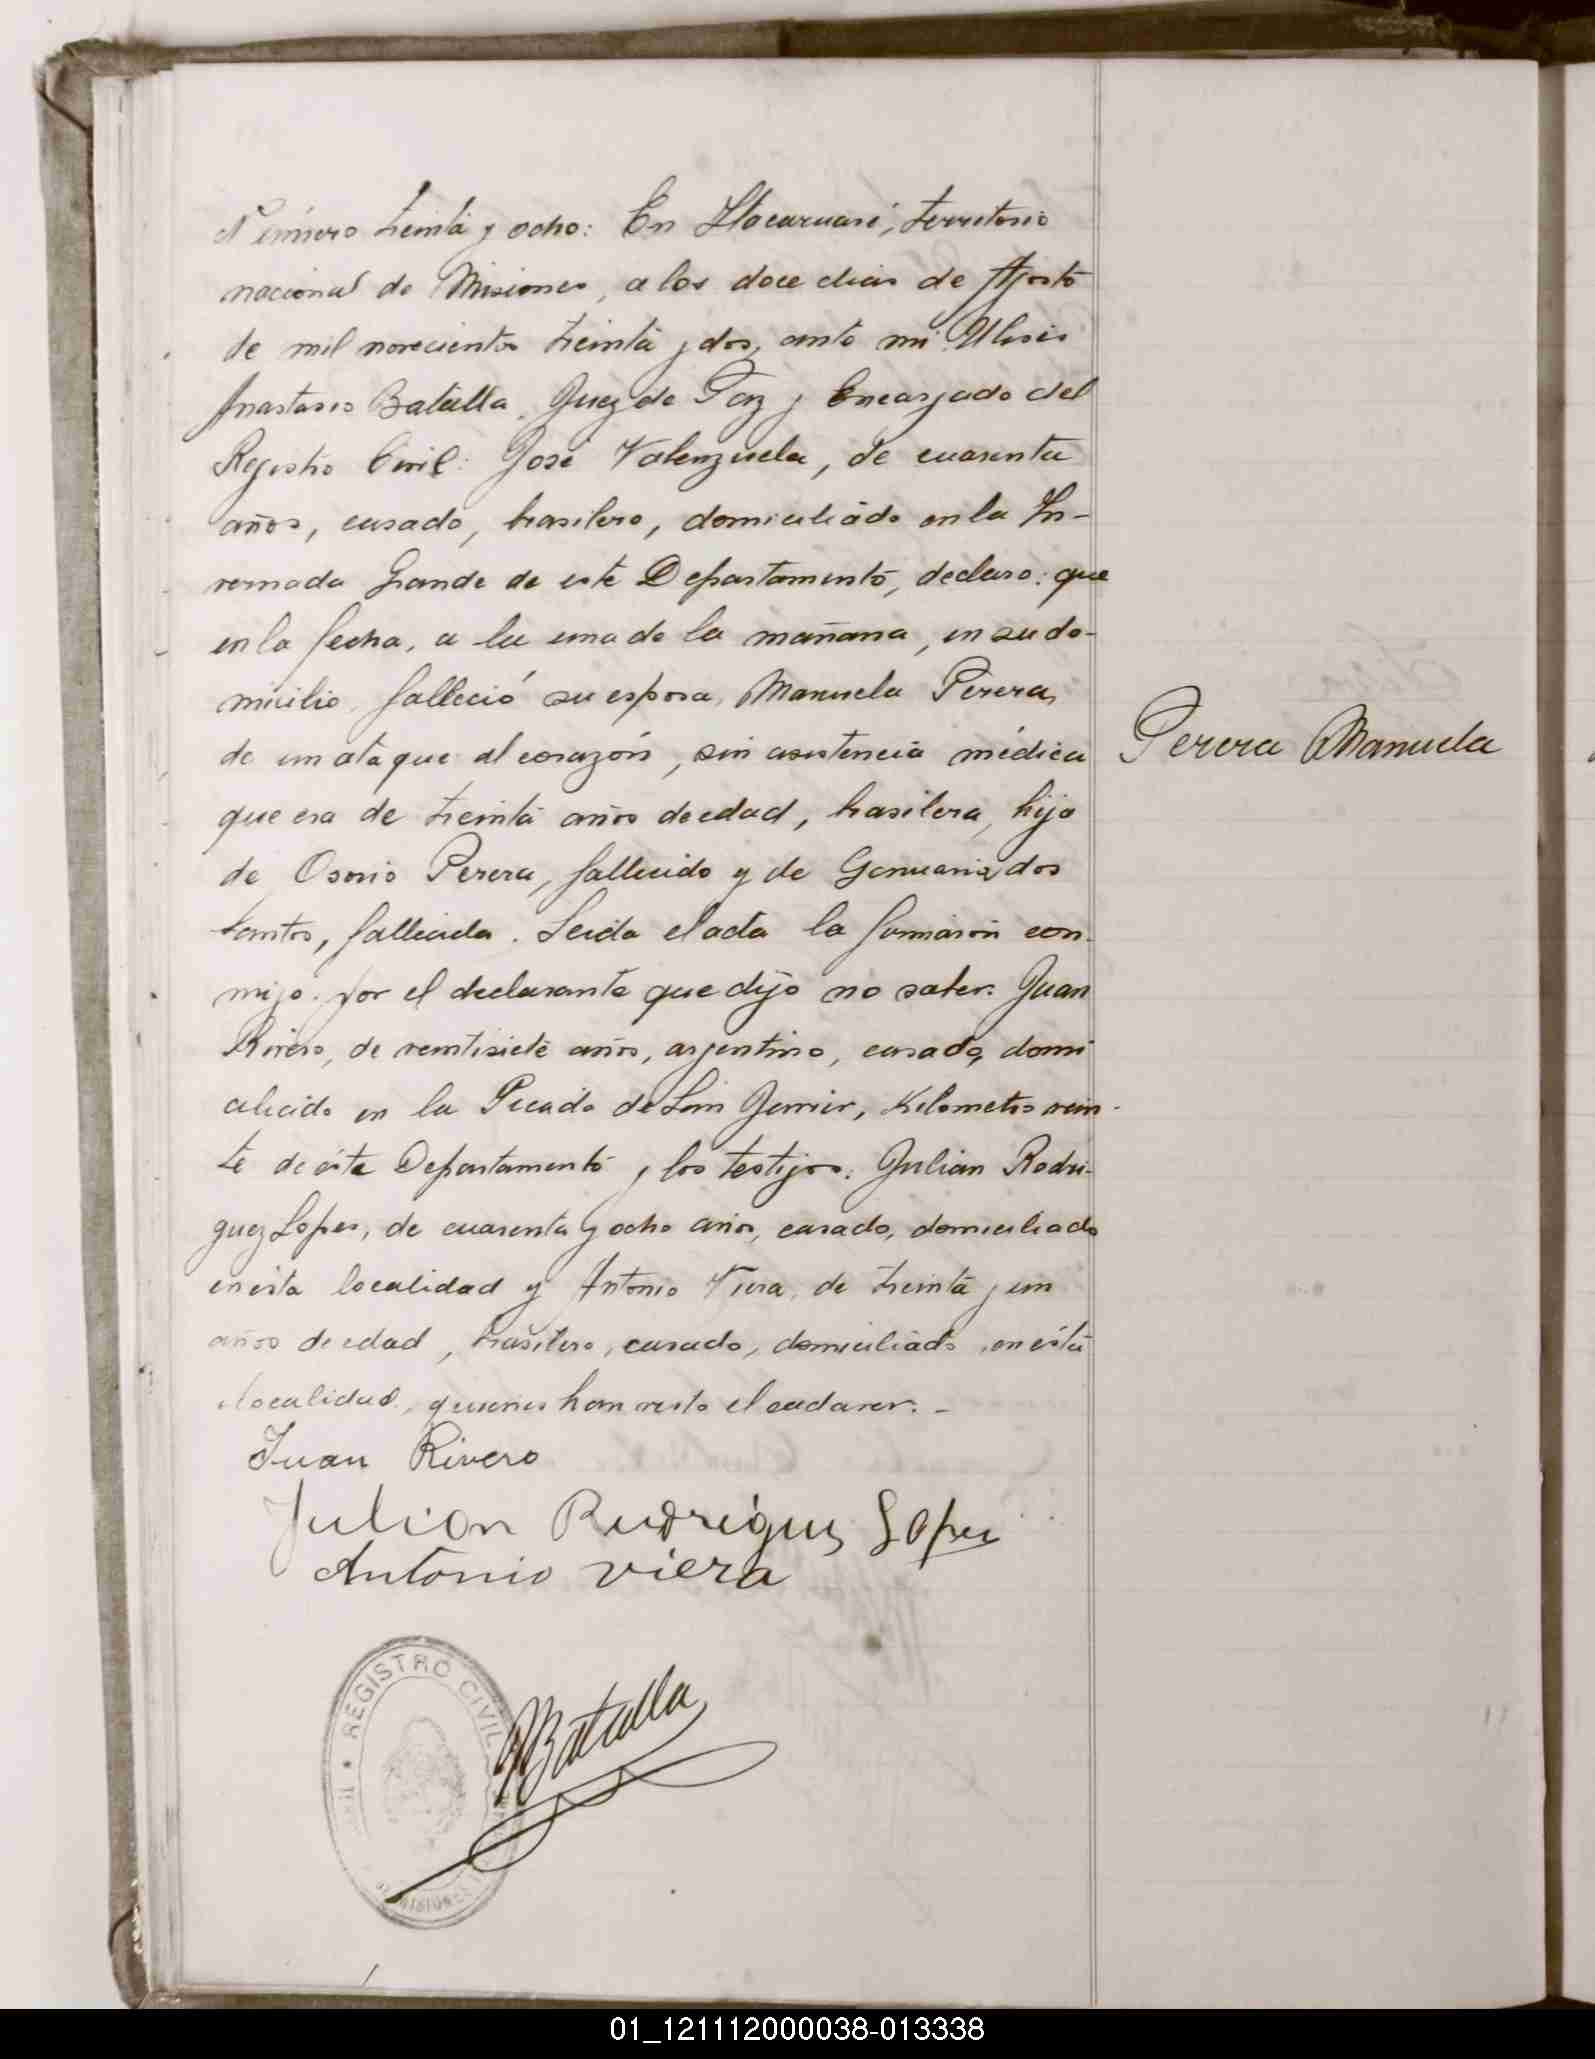 Número treinta y ocho: En Itacaruaré, territorio
nacional de Misiones, a los doce dias de Agosto
de mil novecientos treinta y dos, ante mi Ulises
Anastasio Batalla, Juez de Paz y Encargado del
Registro Civil: José Valenzuela, de cuarenta
años, casado, brasilero, domiciliado en la In-
vernada Grande de este Departamento, declaro: que
en la fecha, a la una de la mañana, en su do-
micilio, falleció su esposa, Manuela Perera,
de un ataque al corazón, sin asistencia médica
que era de treinta años de edad, brasilera, hija
de Osorio Perera, fallecido y de Genuaria dos
Santos, fallecida. Leida el acta la firmaron con-
migo. por el declarante que dijo no saber. Juan
Rivero, de veintisiete años, argentino, casado, domi
ciliado en la Picada de San Javier, Kilometro vein-
te de éste Departamento y los testigos: Julian Rodri-
guez Lopes, de cuarenta y ocho años, casado, domiciliado
en ésta localidad y Antonio Viera, de treinta y un
años de edad, brasilero, casado, domiciliado en ésta
localidad, quienes han visto el cadaver. -
Perera Manuela
Juan Rivero
Julian Rudrigues Lopes
Antonio Viera
REGISTRO CIVIL
MISIONES
Batalla
01_121112000038-013338